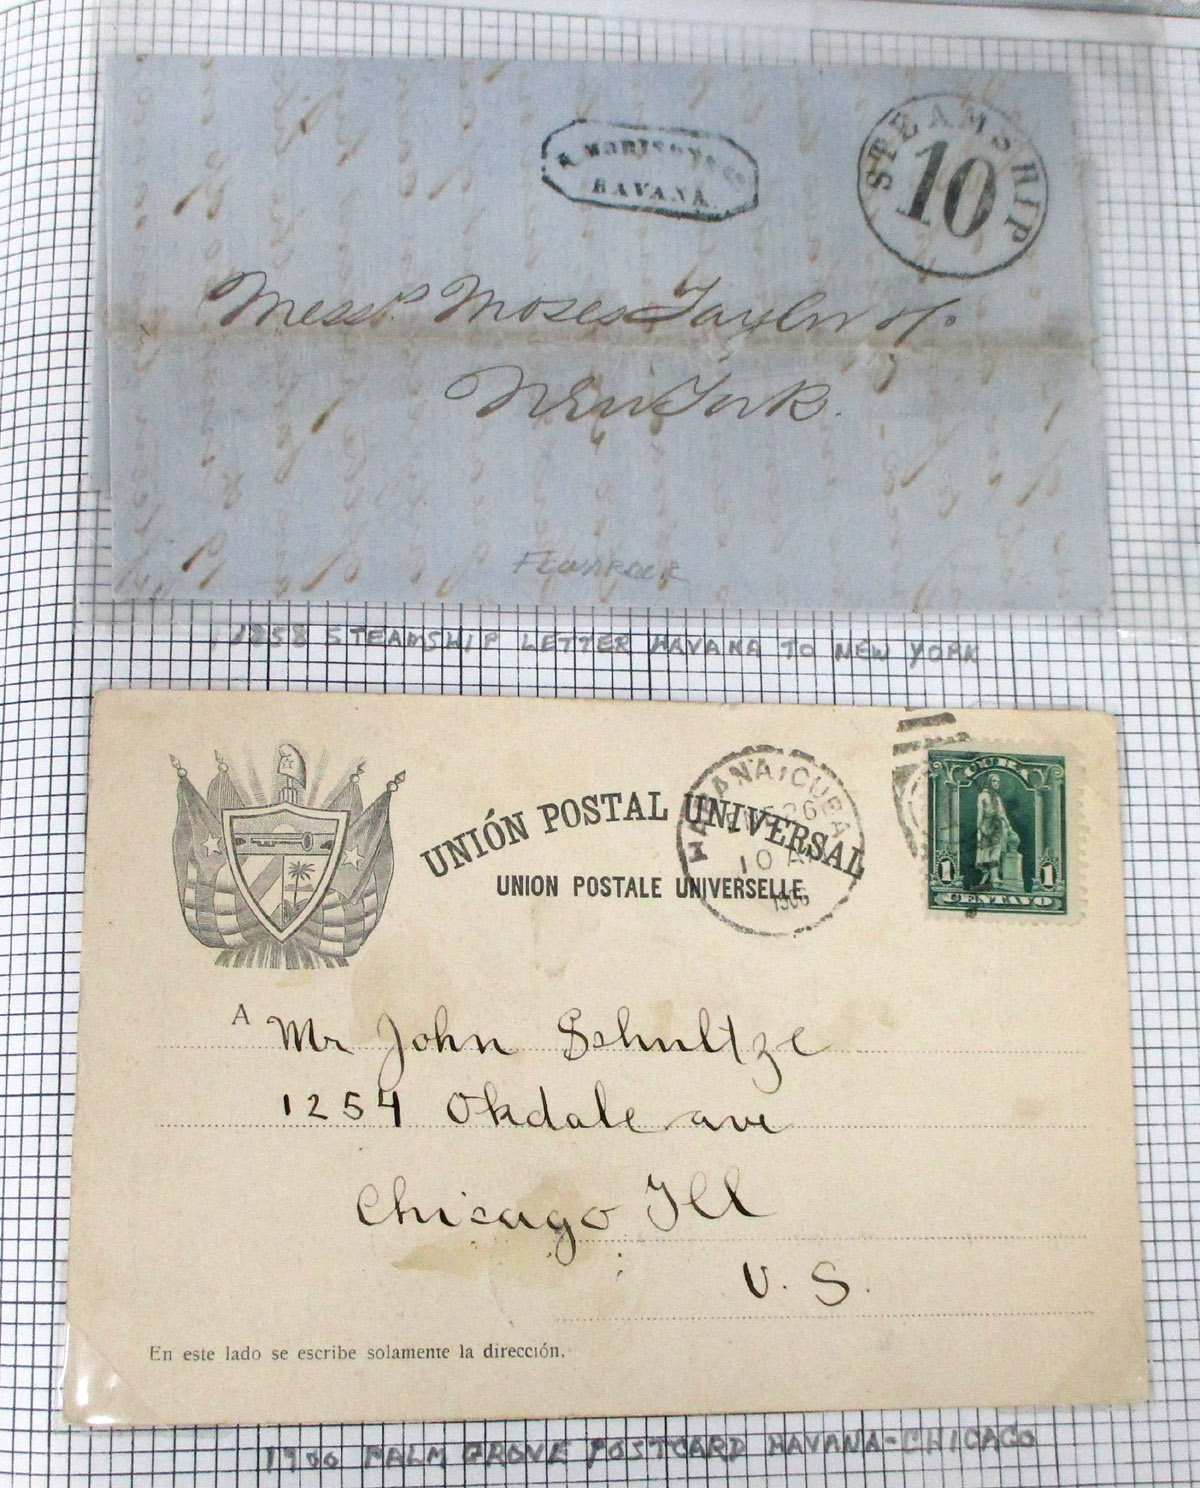 STEAMSHIP
10
MORISON & Co
HAVANA.
Messrs Moses Taylor & Co.
New York.
1858 STEAMSHIP LETTER HAVANA TO NEW YORK
UNIÓN POSTAL UNIVERSAL
UNION POSTALE UNIVERSELLE.
HABANA, CUBA
26
10 A
CUBA
1 1
CENTAVO
A Mr John Schultze
1254 Okdale ave
Chicago Ill
U. S.
En este lado se escribe solamente la dirección.
1906 PALM GROVE POSTCARD HAVANA-CHICAGO